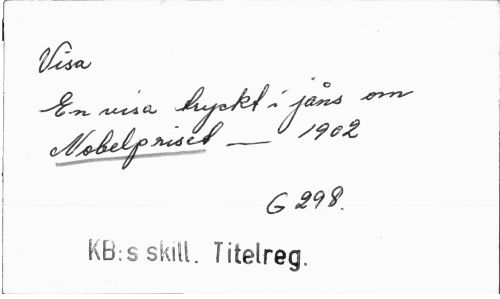 Visa
En visa tryckt i jåns om
Nobelpriset — 1902
G 298.
KB:s skill. Titelreg.